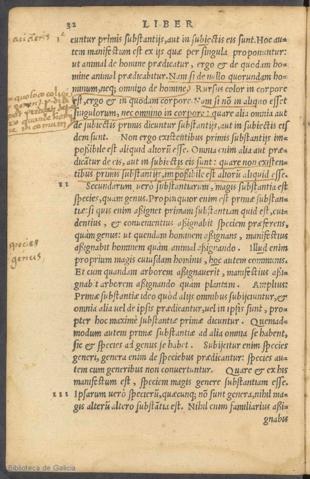 32 LIBER
cuntur primis substantijs, aut in subiectis eis sunt. Hoc au-
tem manifestum est ex ijs quæ per singula proponuntur:
ut animal de homine prædicatur, ergo & de quodam ho-
mine animal prædicabitur. Nam si de nullo quorundam ho-
minum, neq; omnino de homine. Rursus color in corpore
est, ergo & in quodam corpore. Nam si nõ in aliquo esset
singulorum, nec omnino in corpore: quare alia omnia aut
de subiectis primis dicuntur substantijs, aut in subiectis eis-
dem sunt. Non ergo existentibus primis substantijs im-
possibile est aliquid aliorũ esse. Omnia enim alia aut præ-
dicãtur de eis, aut in subiectis eis sunt: quare non existen-
tibus primis substantijs, impossibile est aliorũ aliquid esse.
II Secundarum uerò substantiarum, magis substantia est
species, quàm genus. Propinquior enim est primæ substan-
tiæ: si quis enim assignet primam substantiam quid est, eui-
dentius, & conuenientius assignabit speciem proferens,
quàm genus: ut quendam hominem assignans, manifestius
assignabit hominem quàm animal assignando. Illud enim
proprium magis cuiusdam hominis, hoc autem communius.
Et cum quandam arborem assignauerit, manifestius assi-
gnabit arborem assignando quàm plantam. Amplius:
Primæ substantiæ ideo quòd alijs omnibus subijciuntur, &
omnia alia uel de ipsis prædicantur, uel in ipsis sunt, pro-
pter hoc maximè substantiæ primæ dicuntur. Quemad-
modum autem primæ substantiæ ad alia omnia se habent,
sic & species ad genus se habet. Subijcitur enim species
generi, genera enim de speciebus prædicantur: species au-
tem cum generibus non conuertuntur. Quare & ex his
manifestum est, speciem magis genere substantiam esse.
III Ipsarum uerò specierũ, quæcunq; nõ sunt genera, nihil ma-
gis alterũ altero substãtia est. Nihil enim familiarius assi-
gnabis
species
genus,
Biblioteca de Galicia